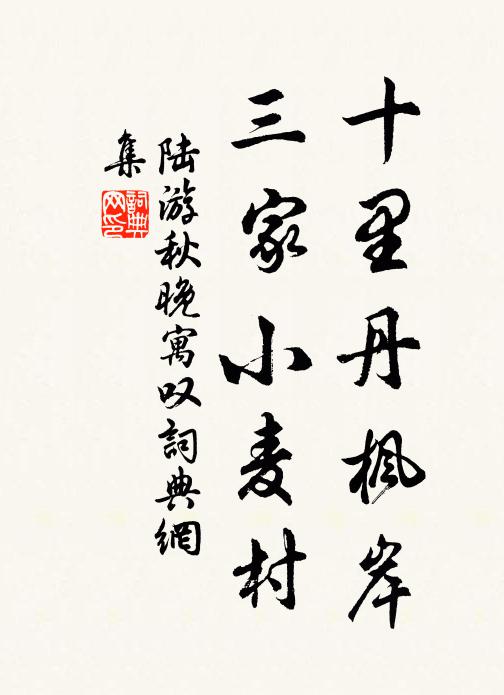 十里丹枫岸
三家小麦村
陆游秋晚寓叹詞典網
集
詞典
网印